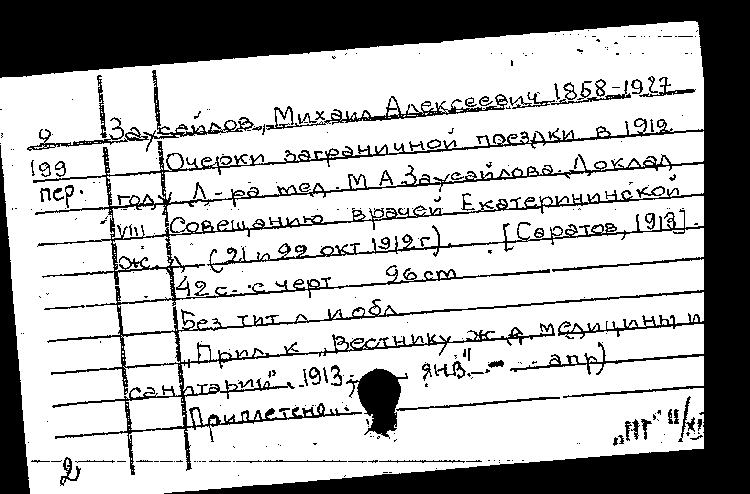 9 Заусайлов, Михаил Алексеевич 1858-1927
199 Очерки заграничной поездки в 1912
пер. году Д-ра мед. М А Заусайлова. Доклад
VIII Совещанию врачей Екатерининской
ж. д (21 и 22 окт 1912 г). [Саратов, 1913].
42 с. с черт 26 cm
Без тит л и обл
„Прил. к „Вестнику ж.д. медицины и
санитарии". 1913, янв" - апр)
Приплетено".
2 „III" II/XI